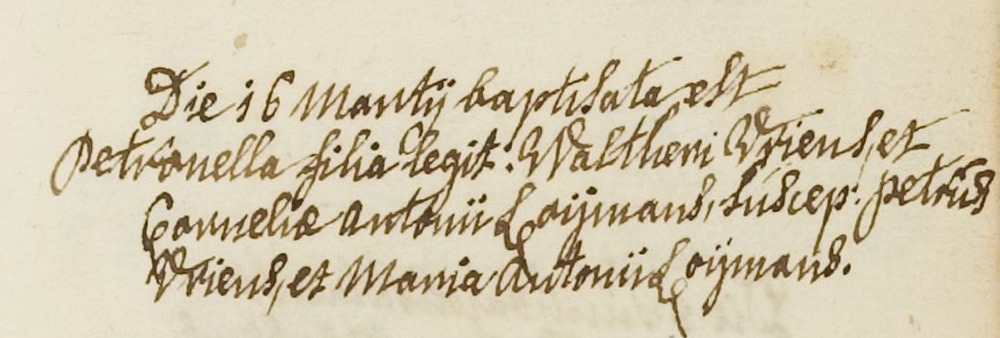 Die 16 Martij baptisata est
Petronella filia legit: Waltheri Vriens, et
Corneliæ Antonii Loijmans, suscep: petrus
Vriens, et Maria Antonii Loijmans.